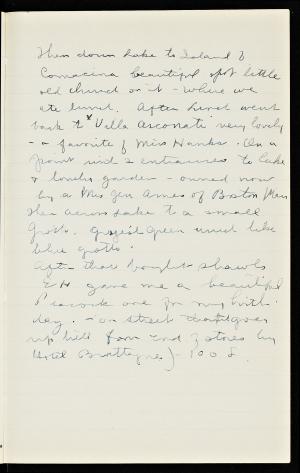 then down Lake to Island of
Comacina beautiful spot little
old church on it - where we
ate lunch. After lunch went
back to x Villa Arconati very lovely
- a favorite of Miss Hanks. On a
point and 2 entrances to lake
& lovely garden - owned now
by a Mrs Gen Ames of Boston Mass
then across Lake to a small
grotto. gorgeous green much like
blue grotto.
After that bought shawls
E H gave me a beautiful
Peacock one for my birth-
day. - on street that goes
up hill from end of stores by
Hotel Brettagne) - 100 £.